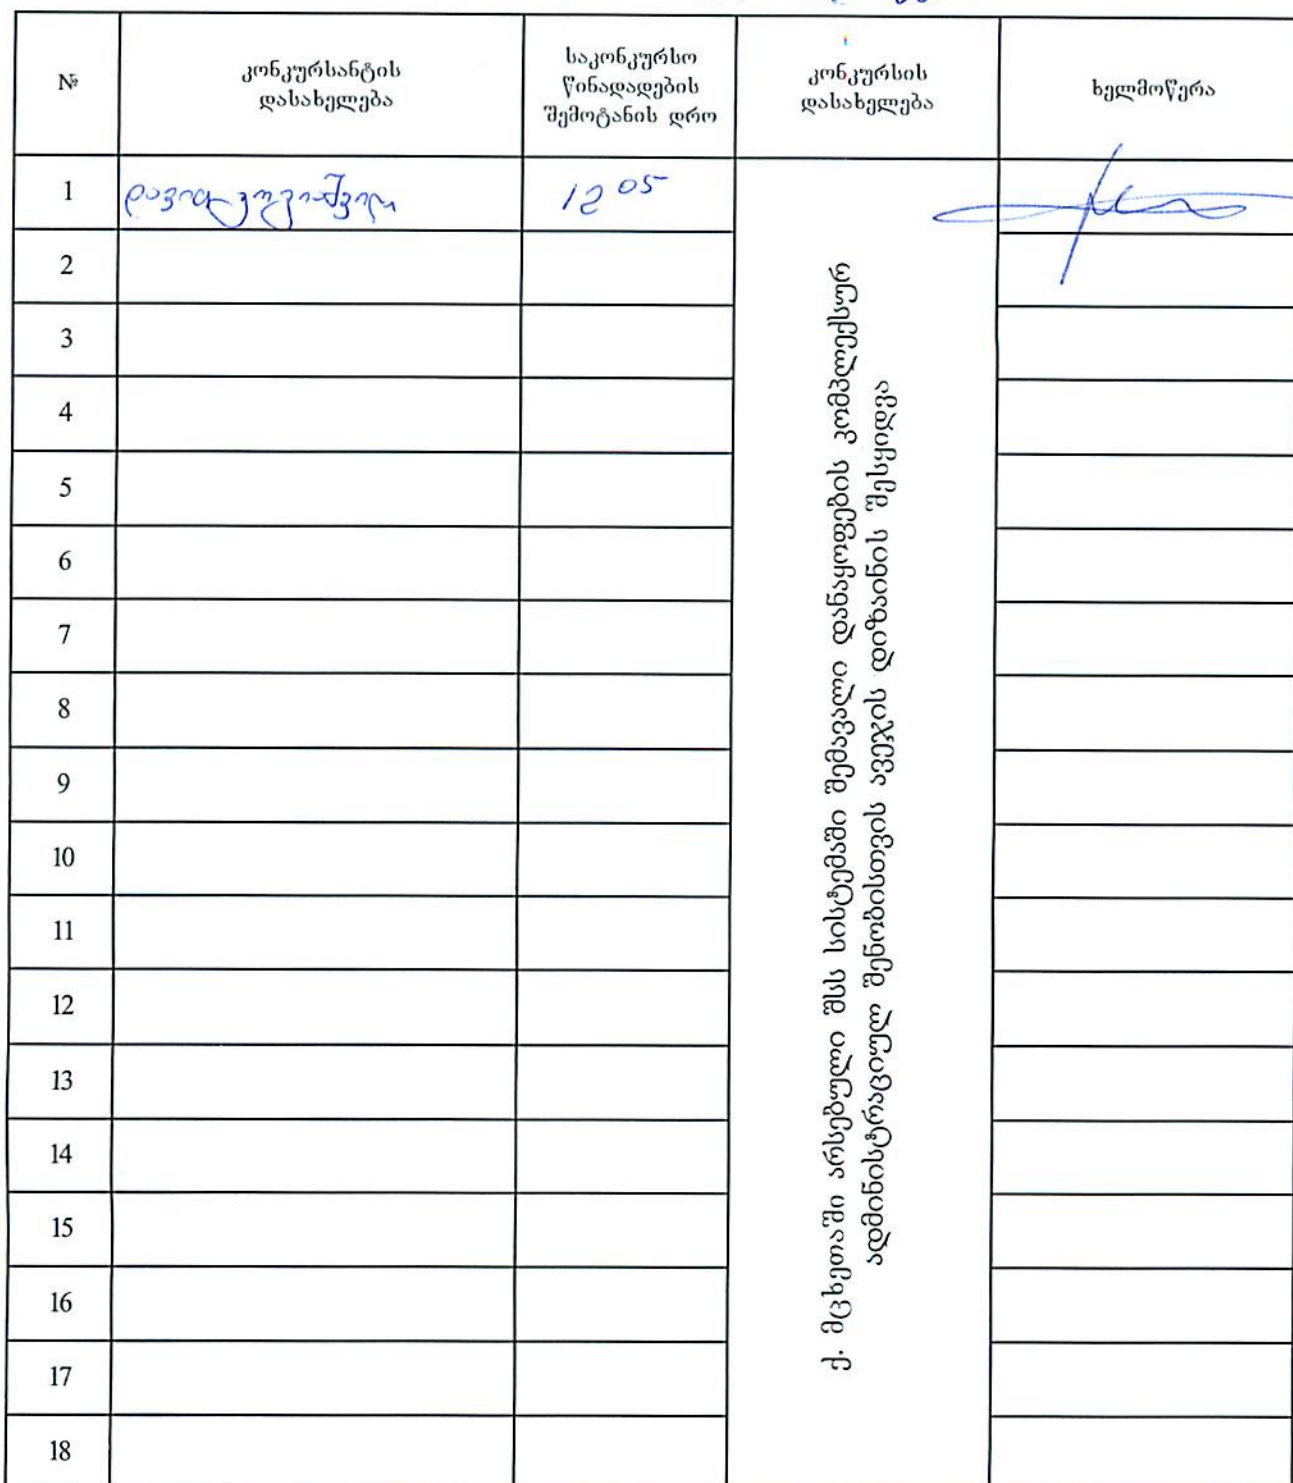 №
კონკურსანტის
დასახელება
საკონკურსო
წინადადების
შემოტანის დრო
კონკურსის
დასახელება
ხელმოწერა
1
დავით
12 05
ქ. მცხეთაში არსებული შსს სისტემაში შემავალი დანაყოფების კომპლექსურ
ადმინისტრაციულ შენობისთვის ავეჯის დიზაინის შესყიდვა
2
3
4
5
6
7
8
9
10
11
12
13
14
15
16
17
18